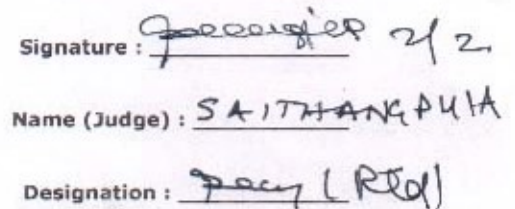 Signature : 2/2
Name (Judge) : SAITHANGPUIA
Designation : (Rtd)